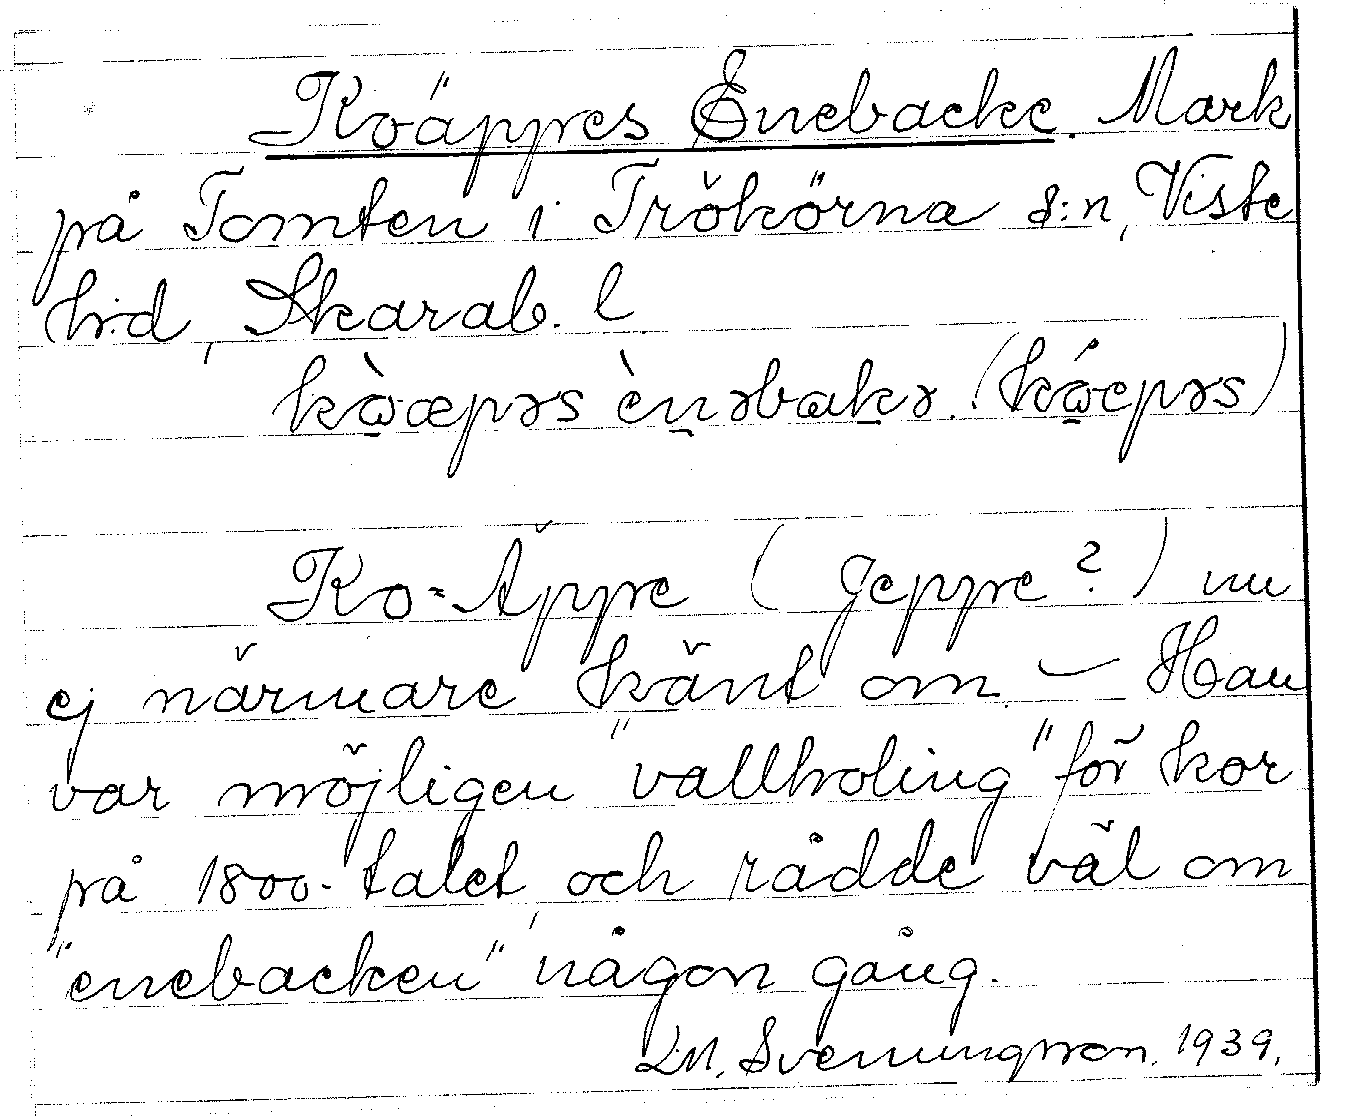 Koäppes Enebacke. Mark
på Tomten i Trökörna s:n, Viste
h:d, Skarab. l.
kὼæpəs ènəbakə. (kώæpəs)
Ko-Äppe (Jeppe?) nu
ej närmare känt om. — Han
var möjligen "vallholing" för kor
på 1800-talet, och rådde väl om
"enebacken" någon gång.
Svenungsson. 1939.